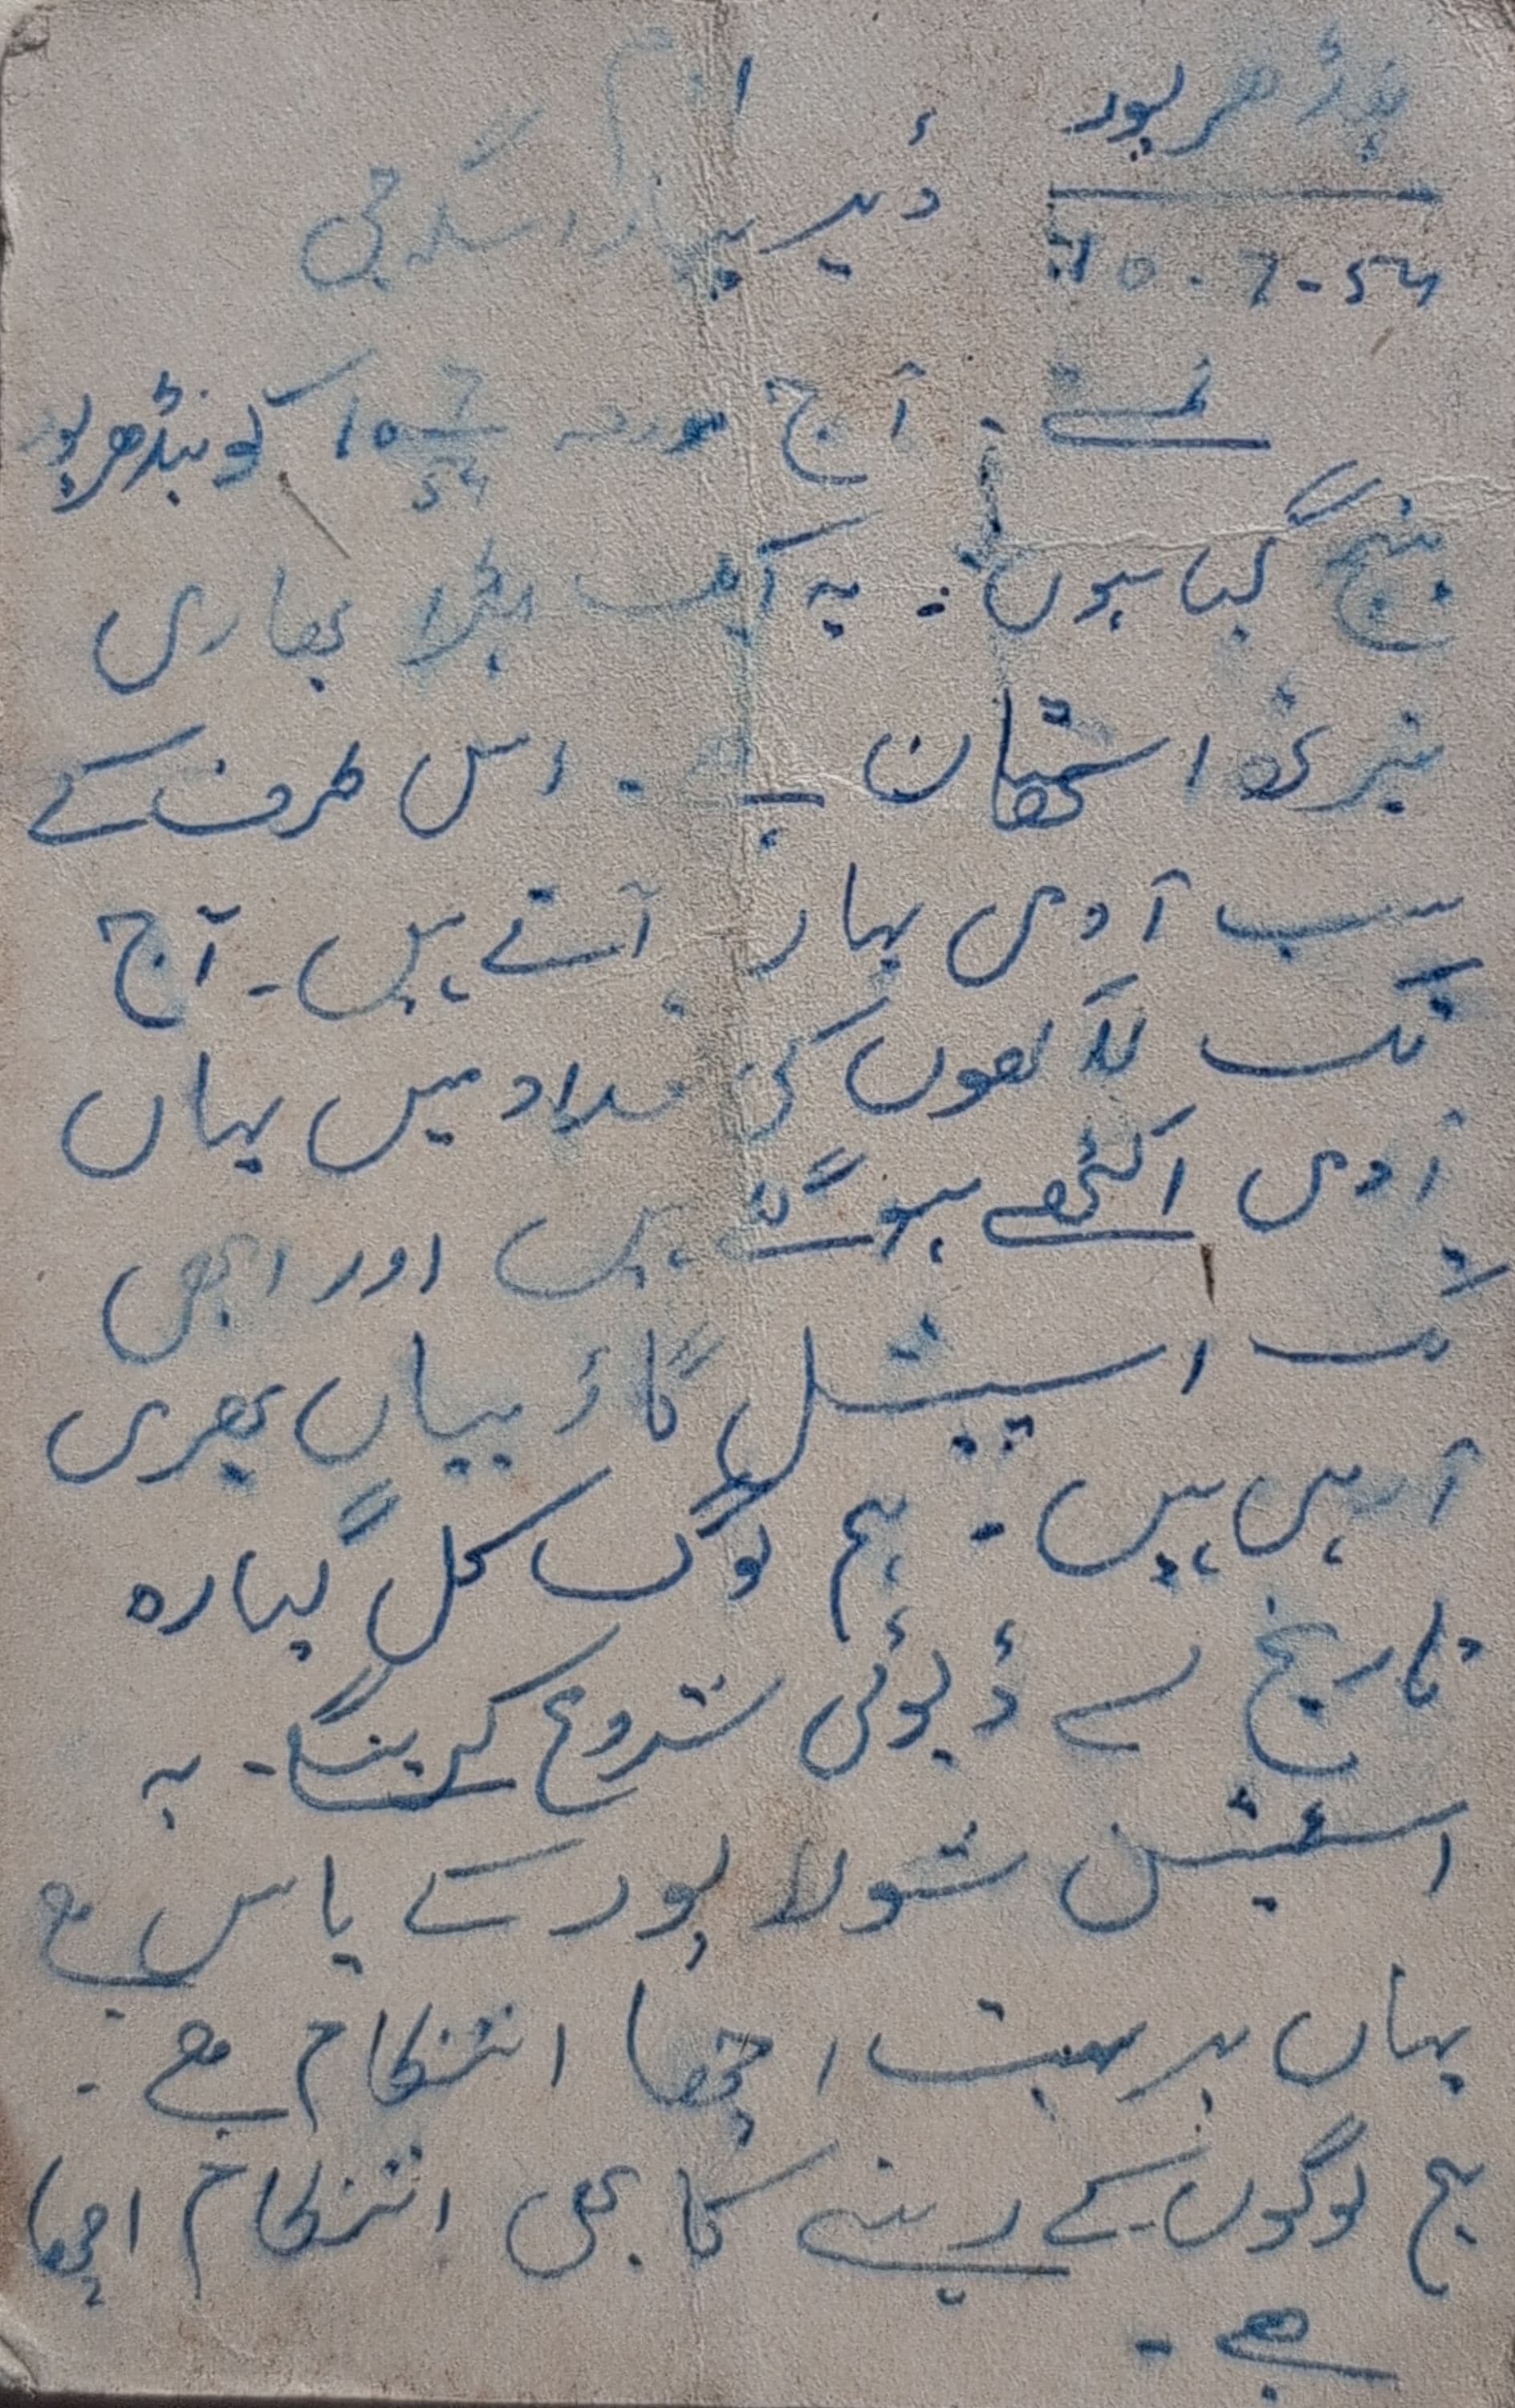 پنڈھرپور
اوم
10-7-54
ڈیر پیارا سنگھ جی
نمستے۔ آج مورخہ 10 7/54 کو پنڈھرپور
پہنچ گیا ہوں۔ یہ ایک بڑا بھاری
تیرتھ استھان ہے۔ اس طرف کے
سب آدمی یہاں آتے ہیں۔ آج
تک لاکھوں کی تعداد میں یہاں
آدمی اکٹھے ہوگئے ہیں اور ابھی
تک اسپیشل گاڑیاں بھری
آرہی ہیں۔ ہم لوگ کل گیارہ
تاریخ سے ڈیوٹی شروع کرینگے۔ یہ
اسٹیشن شولاپور کے پاس ہے
یہاں پر بہت اچھا انتظام ہے۔
ہم لوگوں کے رہنے کا بھی انتظام اچھا
ہے۔